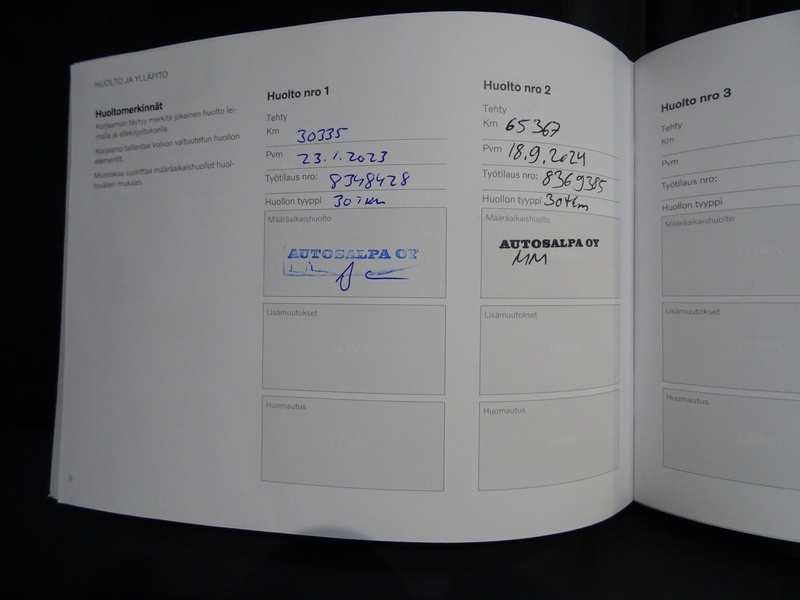 HUOLTO JA YLLÄPITO
Huoltomerkinnät
Korjaamon täytyy merkitä jokainen huolto lei-
malla ja allekirjoituksella.
Korjaamo tallentaa Volvon valtuutetun huollon
elementit.
Muistakaa suorittaa määräaikaishuollot huol-
tovälien mukaan.
6
Huolto nro 1
Tehty
Km 30335
Pvm 23.1.2023
Työtilaus nro: 8348428
Huollon tyyppi 30 tkm
Määräaikaishuolto
AUTOSALPA OY
Lisämuutokset
LEIMA
Huomautus
LEIMA
Huolto nro 2
Tehty
Km 65367
Pvm 18.9.2024
Työtilaus nro: 8369385
Huollon tyyppi 30tkm
Määräaikaishuolto
AUTOSALPA OY
MM
Lisämuutokset
LEIMA
Huomautus
LEIMA
Huolto nro 3
Tehty
Km
Pvm
Työtilaus nro:
Huollon tyyppi
Määräaikaishuolto
Lisämuutokset
Huomautus